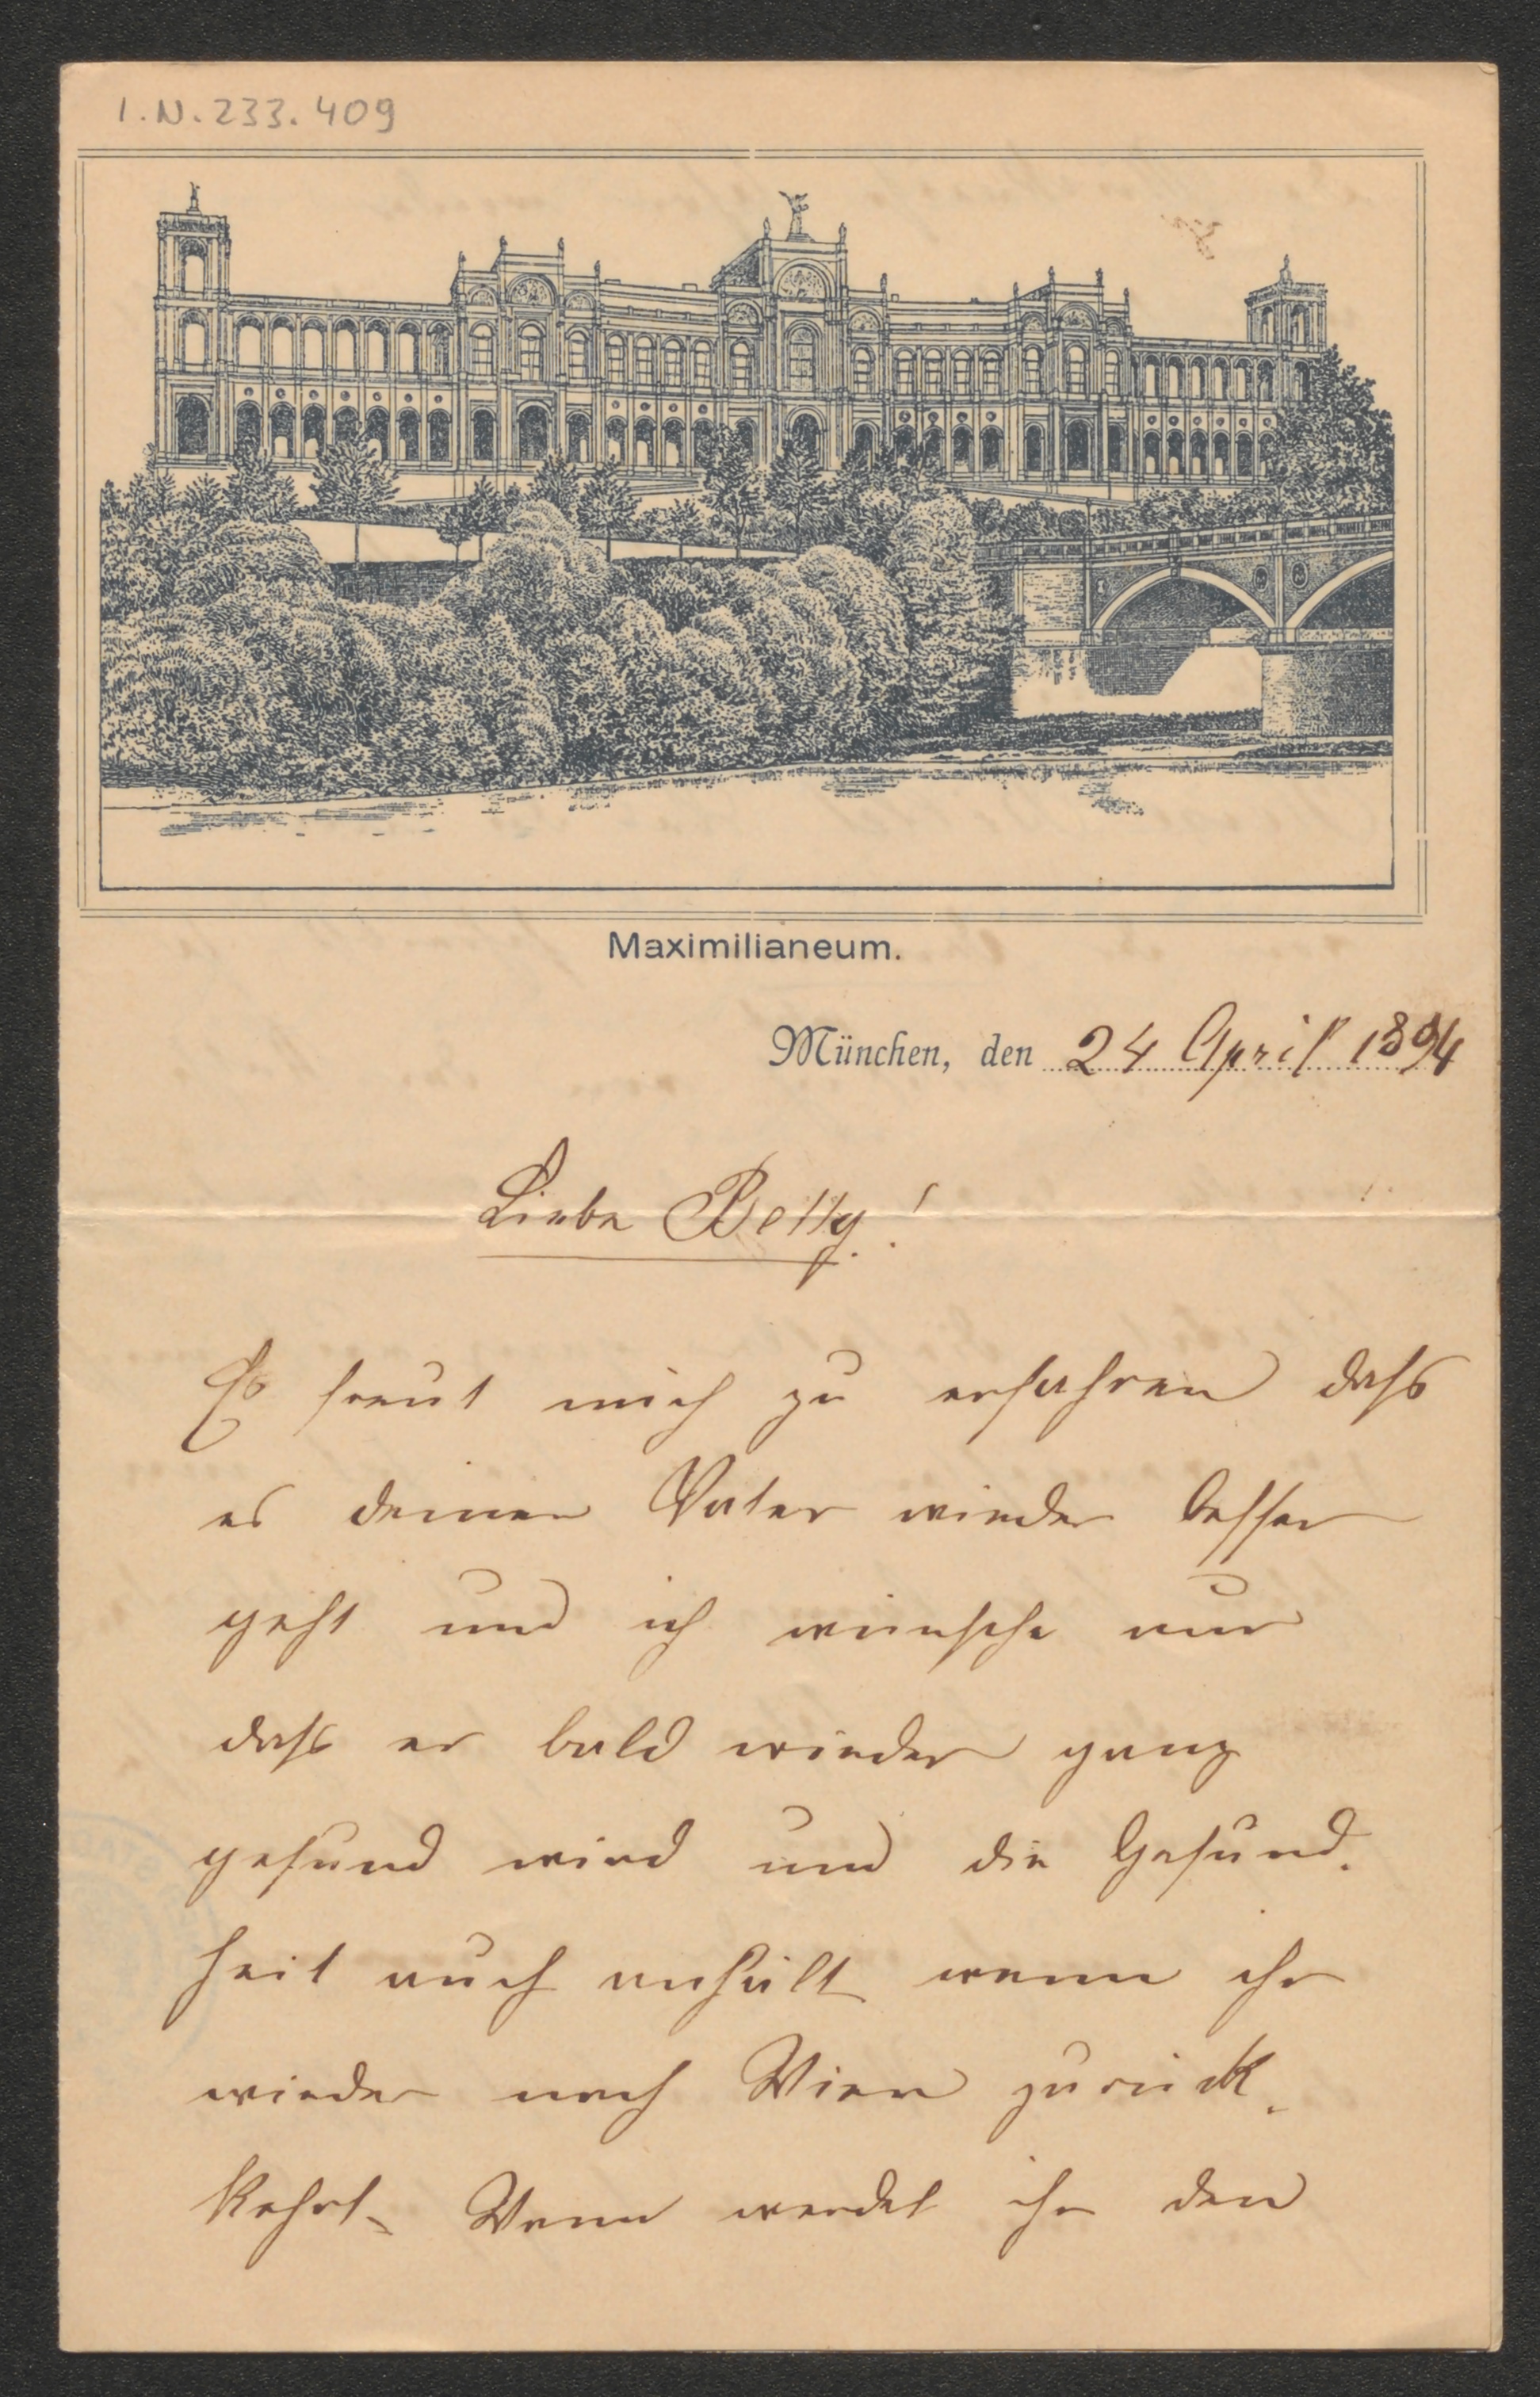 I.N. 233.409
Maximilianeum.
München, den 24 April 1894
Liebe Betty!
Es freut mich zu erfahren daß
es deinen Vater wieder besser
geht und ich wünsche nur
daß er bald wieder ganz
gesund wird und die Gesund-
heit auch anhält wenn ihr
wieder nach Wien zurück-
kehrt. Wann werdet ihr den